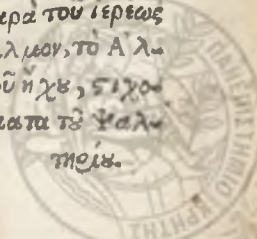 ρα του ιερέως
λμον, τὸ Ἀλ-
οῦ ἤχου, στιχο-
ματα τοῦ Ψαλ-
τηρίου.
ΠΑΝΕΠΙΣΤΗΜΙΟ ΚΡΗΤΗΣ